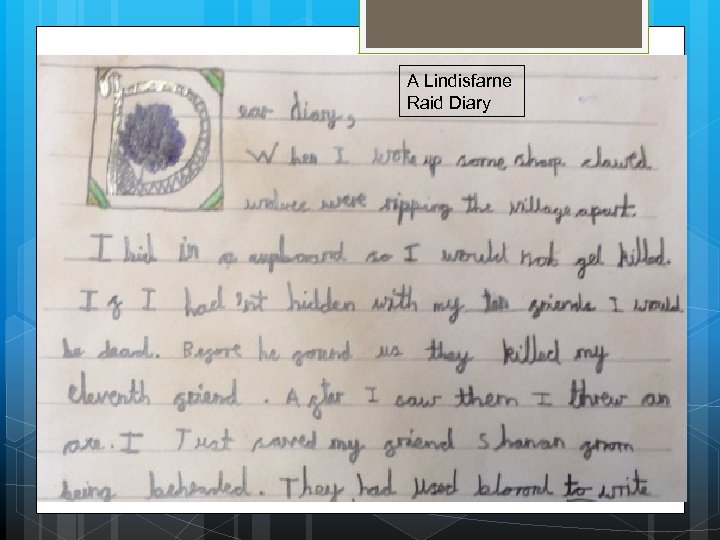 A Lindisfarne
Raid Diary
Dear diary,
When I woke up some sharp clawed
wolves were ripping the village apart.
I hid in a cupboard so I would not get killed.
If I had'nt hidden with my ten friends I would
be dead. Before he found us they killed my
eleventh friend. After I saw them I threw an
axe. I Just saved my friend Shanan from
being beheaded. They had used blood to write